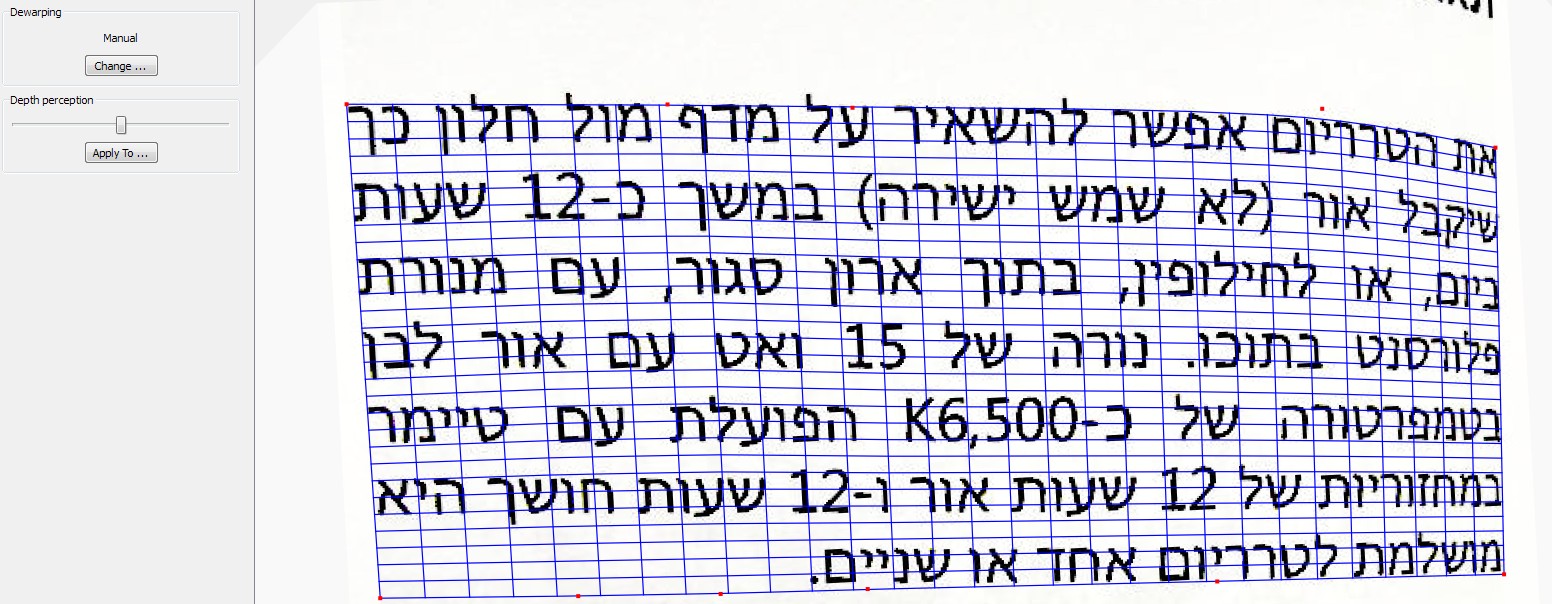 Dewarping
Manual
Change ...
Depth perception
Apply To ...
את הטרריום אפשר להשאיר על מדף מול חלון כך
שיקבל אור (לא שמש ישירה) במשך כ-12 שעות
ביום, או לחילופין, בתוך ארון סגור, עם מנורת
פלורסנט בתוכו. נורה של 15 ואט עם אור לבן
בטמפרטורה של כ-K6,500 הפועלת עם טיימר
במחזוריות של 12 שעות אור ו-12 שעות חושך היא
מושלמת לטרריום אחד או שניים.